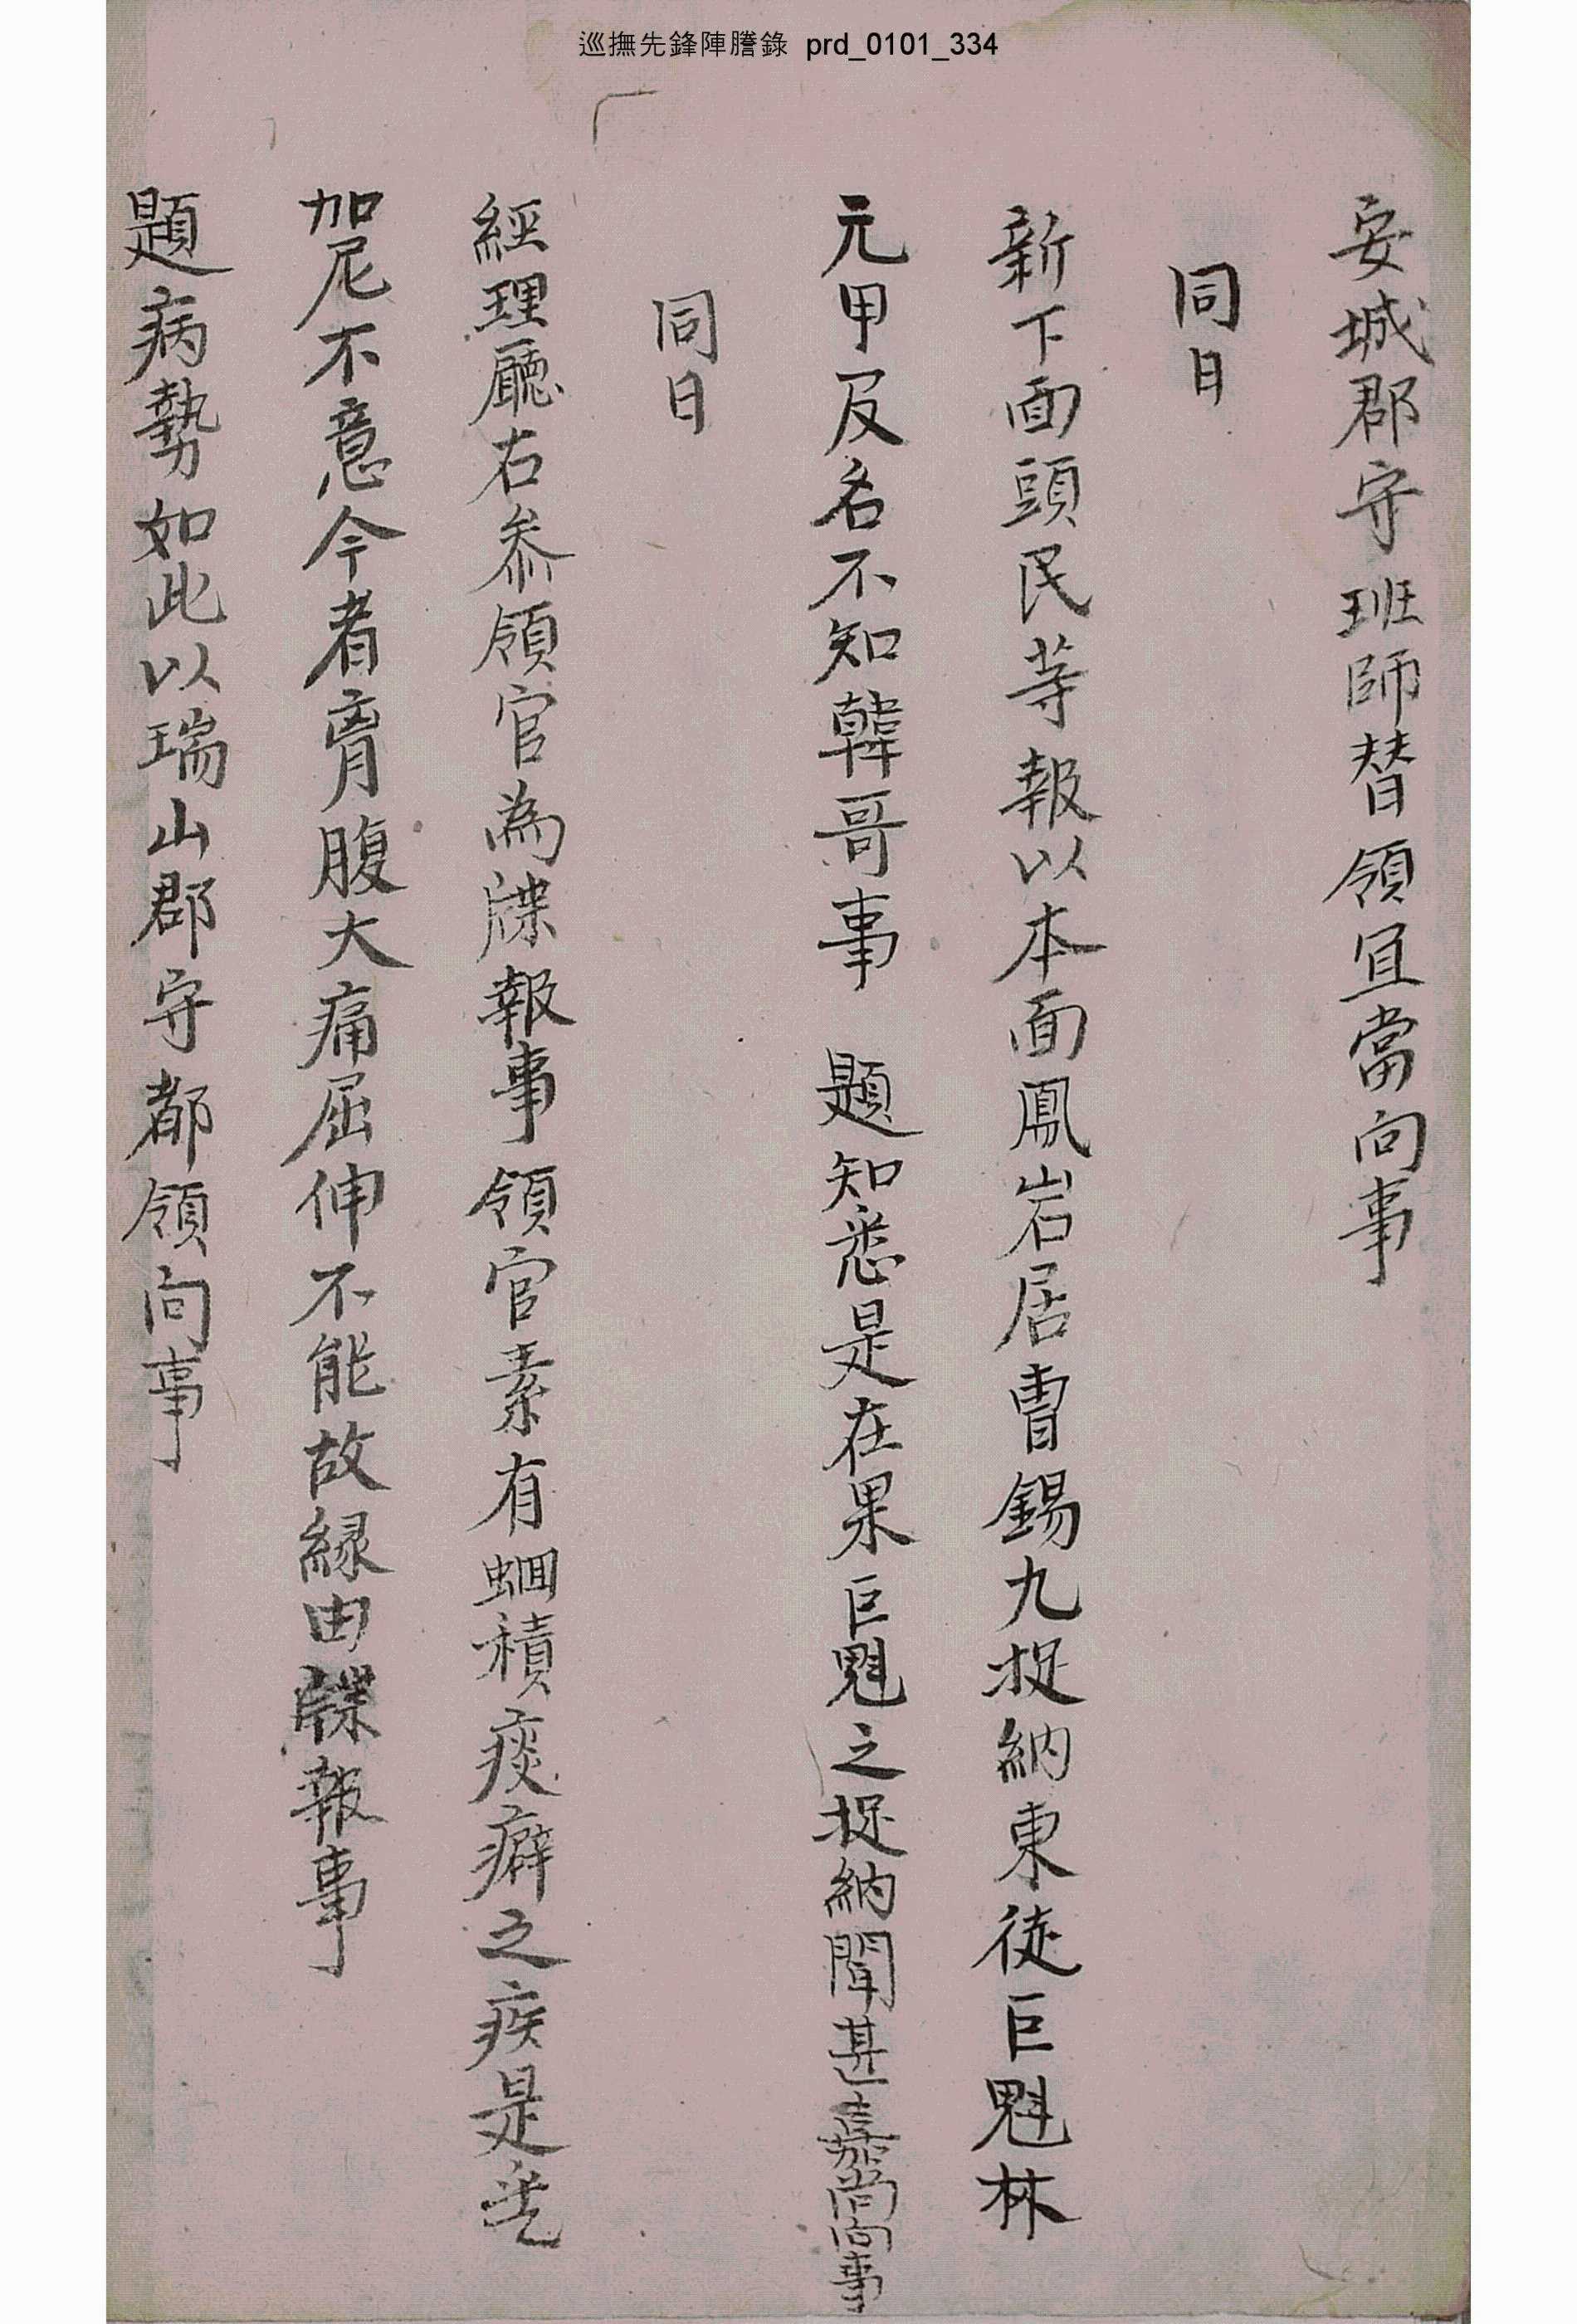 巡撫先鋒陣謄錄 prd_0101_334
安城郡守班師替領宜當向事
同日
新下面頭民等報以本面鳳岩居曺錫九捉納東徒巨魁林
元甲及名不知韓哥事 題知悉是在果巨魁之捉納聞甚嘉尚向事
同日
經理廳右叅領官為牒報事領官素有蛔積痰癖之疾是乎
加尼不意今者胷腹大痛屈伸不能故緣由牒報事
題病勢如此以瑞山郡守都領向事